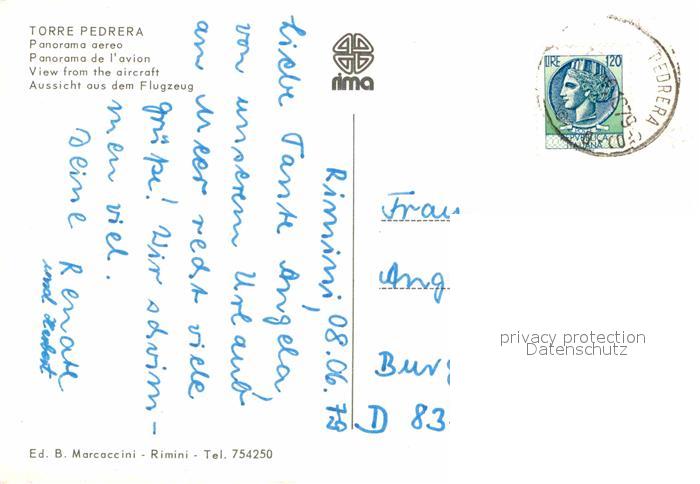 TORRE PEDRERA
Panorama aereo
Panorama de l'avion
View from the aircraft
Aussicht aus dem Flugzeug
rima
LIRE 120
PEDRERA
Rimini, 08.06.79
Liebe Tante Angela,
von unserem Urlaub
am Meer recht viele
Grüße! Wir schwim-
men viel.
Deine Renate
und Herbert
Frau
Ang
Burg
D 83
privacy protection
Datenschutz
Ed. B. Marcaccini - Rimini - Tel. 754250